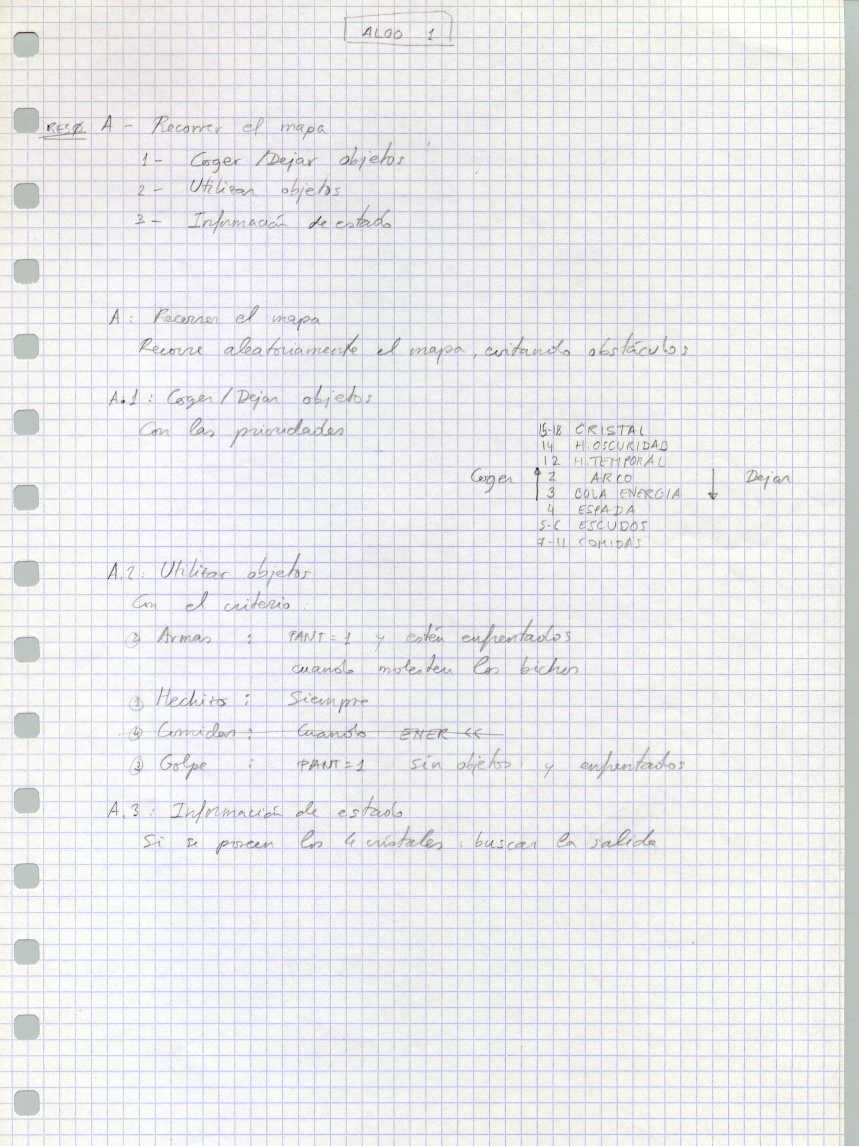 ALGO 1
A - Recorrer el mapa
1 - Coger / Dejar objetos
2 - Utilizar objetos
3 - Información de estado
A : Recorrer el mapa
Recorre aleatoriamente el mapa, evitando obstáculos
A.1 : Coger / Dejar objetos
Con las prioridades
15-18 CRISTAL
14 H. OSCURIDAD
12 H. TEMPORAL
Coger ↑ 2 ARCO ↓ Dejar
3 COLA ENERGIA
4 ESPADA
5-6 ESCUDOS
7-11 COMIDAS
A.2 : Utilizar objetos
Con el criterio :
② Armas : PANT = 1 y estén enfrentados
cuando molesten los bichos
① Hechizos : Siempre
④ Comidas : Cuando ENER <<
③ Golpe : PANT = 1 sin objetos y enfrentados
A.3 : Información de estado
Si se poseen los 4 cristales, buscar la salida